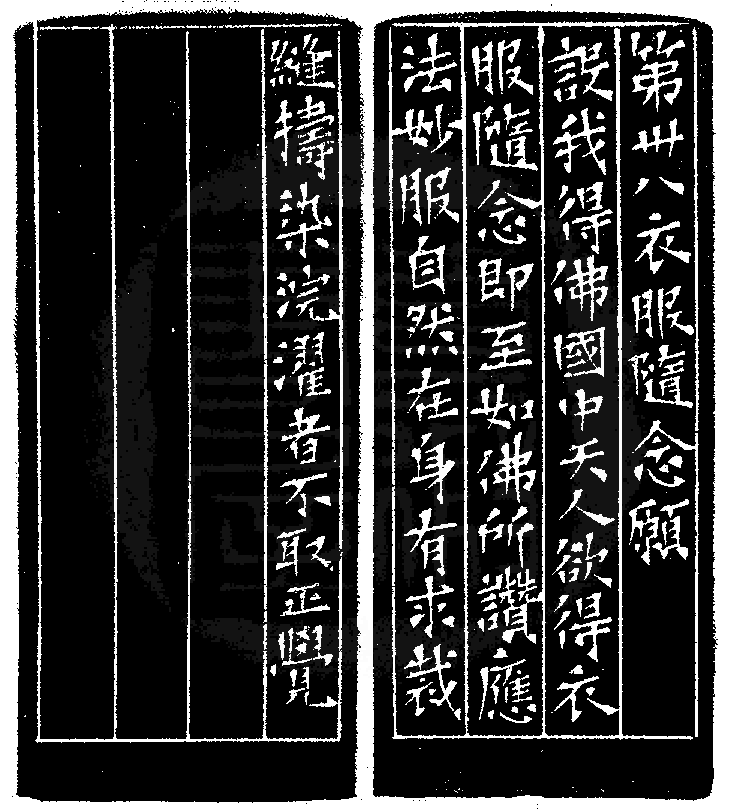 第卅八衣服隨念願
設我得佛國中天人欲得衣
服隨念即至如佛所讚應
法妙服自然在身有求裁
縫擣染浣濯者不取正覺